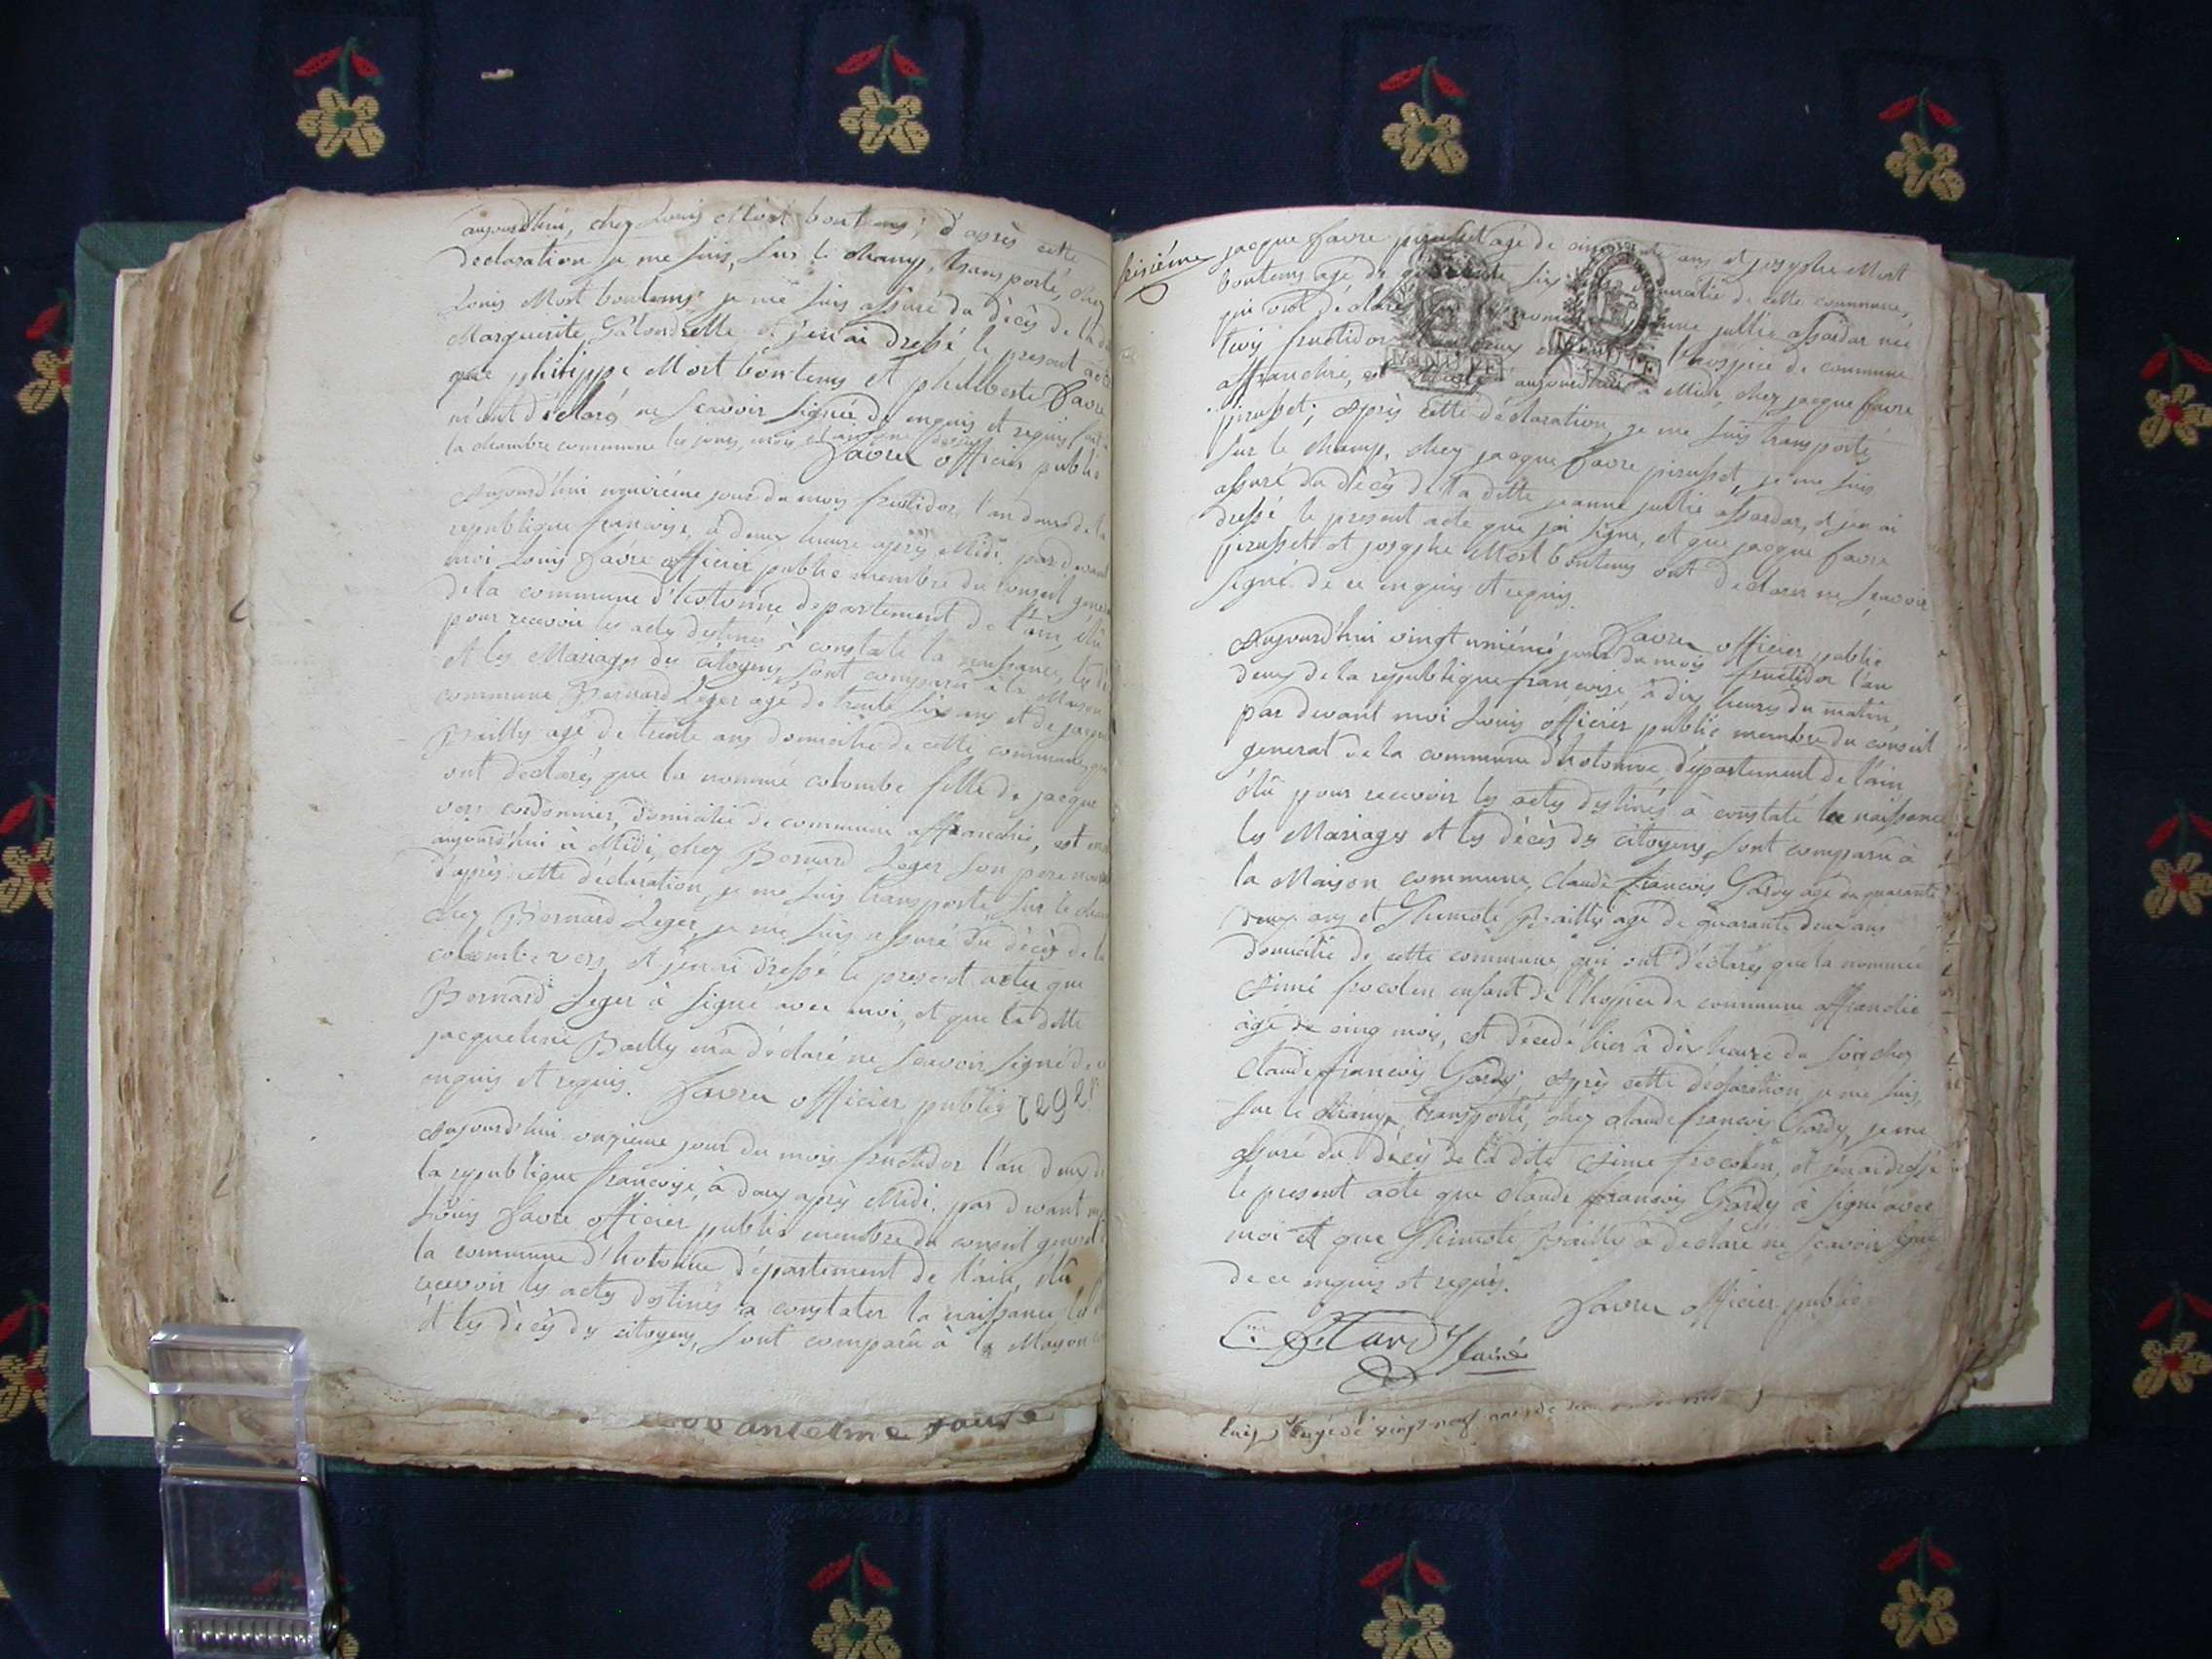 aujourd'hui, chez Louis Most bontems; d'après cette
declaration je me suis, sur le champ, transporté, chez
Louis Most bontems je me suis assuré du décès de la
Marguerite et j'en ai dressé le present acte
que philippe Most bontems et philiberte favre
m'ont déclarés ne scavoir signée de enquis et requis fait
la chambre commune les jours, mois et an que dessus
favre officier public
Aujourd'hui neuvième jour du mois fructidor l'an deux de la
republique francoise, à deux heure après Midi, par devant
moi Louis favre officier public membre du conseil general
de la commune d'hotonne departement de l'ain, élu
pour recevoir les actes destinés à constate la naissance, les dé
et les Mariages des citoyens, sont comparu à la Maison
commune Bernard Leger agé de trente six ans et de jacque
Bailly agé de trente ans domicilié de cette commune, qui
ont déclarés que la nommé colombe fille de jacque
vers cordonnier, domicilié de commune affranchie, est mor
aujourd'hui à Midi, chez Bernard Leger son père nou
d'après cette déclaration, je me suis transporté sur le cham
chez Bernard Leger, je me suis assuré du décès de la
colombe vers et j'en ai dressé le present acte que
Bernard Leger à signé avec moi, et que la ditte
jacqueline Bailly m'a déclaré ne scavoir signé de c
enquis et requis. favre officier public
Aujourd'hui onzieme jour du mois fructidor l'an deux de
la republique francoise, à deux après Midi, par devant m
Louis favre officier public membre du conseil general d
la commune d'hotonne département de l'ain, élu
recevoir les actes destinés a constater la naissance les
et les décès des citoyens, sont comparu à la Maison
anselme
jacque favre pirusset agé de cinquante ans et josephe Most
bontems agé de six ans domicilié de cette commune,
qui ont déclaré jeanne jullie assadar née
trois fructidor l'hospice de commune
affranchie, est aujourd'hui à Midi, chez jacque favre
pirusset; après cette déclaration, je me suis transporté,
sur le champ, chez jacque favre pirusset, je me suis
assuré du décès de la ditte jeanne jullie assadar, et j'en ai
dressé le present acte que j'ai signé, et que jacque favre
pirusset et josephe Most bontems ont declarer ne scavoir
signé de ce enquis et requis.
favre officier public
Aujourd'hui vingt unième jour du mois fructidor l'an
deux de la republique francoise, à dix heures du matin,
par devant moi Louis officier public membre du conseil
general de la commune d'hotonne, département de l'ain,
élu pour recevoir les actes destinés à constaté la naissance
les Mariages et les décès des citoyens, sont comparu à
la Maison commune, claude francois Gardy agé de quarante
deux ans et Thimoté Bailly agé de quarante deux ans
domicilié de cette commune qui ont déclarés que la nommée
aimé frocolen enfant de l'hospice de commune affranchie
âgé de cinq mois, est décedé hier à dix heures du soir chez
claude francois Gardy, après cette déclaration je me suis,
sur le champ, transporté, chez claude francois Gardy, je me
assuré du décès de la dite aimé frocolen, et j'en ai dressé
le present acte que claude francois Gardy à signé avec
moi et que Thimoté Bailly à declaré ne scavoir signé
de ce enquis et requis.
favre officier public
agé de vingt neuf ans